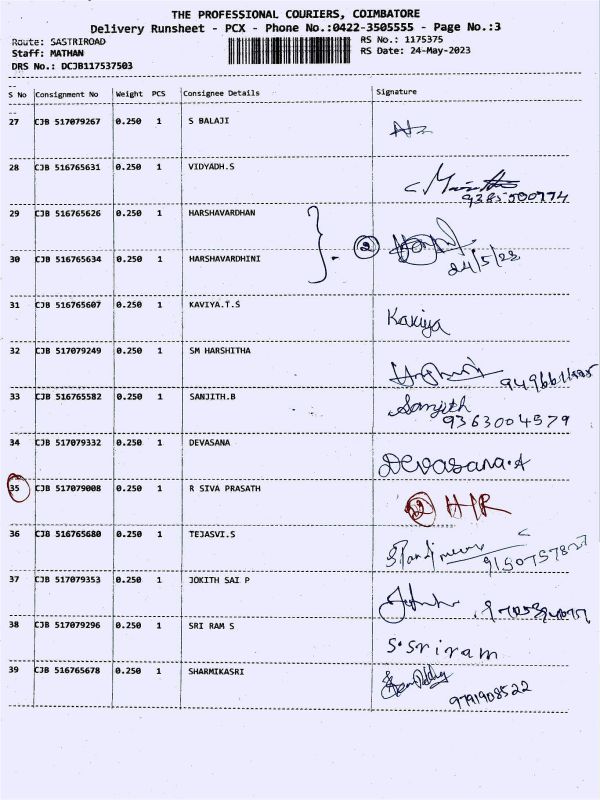 THE PROFESSIONAL COURIERS, COIMBATORE
Delivery Runsheet - PCX - Phone No.:0422-3505555 - Page No.:3
Route: SASTRIROAD RS No.: 1175375
Staff: MATHAN RS Date: 24-May-2023
DRS No.: DCJB117537503
S No Consignment No Weight PCS Consignee Details Signature
27 CJB 517079267 0.250 1 S BALAJI
28 CJB 516765631 0.250 1 VIDYADH.S
9385500774
29 CJB 516765626 0.250 1 HARSHAVARDHAN
2
30 CJB 516765634 0.250 1 HARSHAVARDHINI
24/5/23
31 CJB 516765607 0.250 1 KAVIYA.T.S Kaviya
32 CJB 517079249 0.250 1 SM HARSHITHA
33 CJB 516765582 0.250 1 SANJITH.B Sanjith
9363004579
34 CJB 517079332 0.250 1 DEVASANA Devasana.A
35 CJB 517079008 0.250 1 R SIVA PRASATH 22 H/R
36 CJB 516765680 0.250 1 TEJASVI.S
9150757827
37 CJB 517079353 0.250 1 JOKITH SAI P
38 CJB 517079296 0.250 1 SRI RAM S S.Sriram
39 CJB 516765678 0.250 1 SHARMIKASRI
9791908522